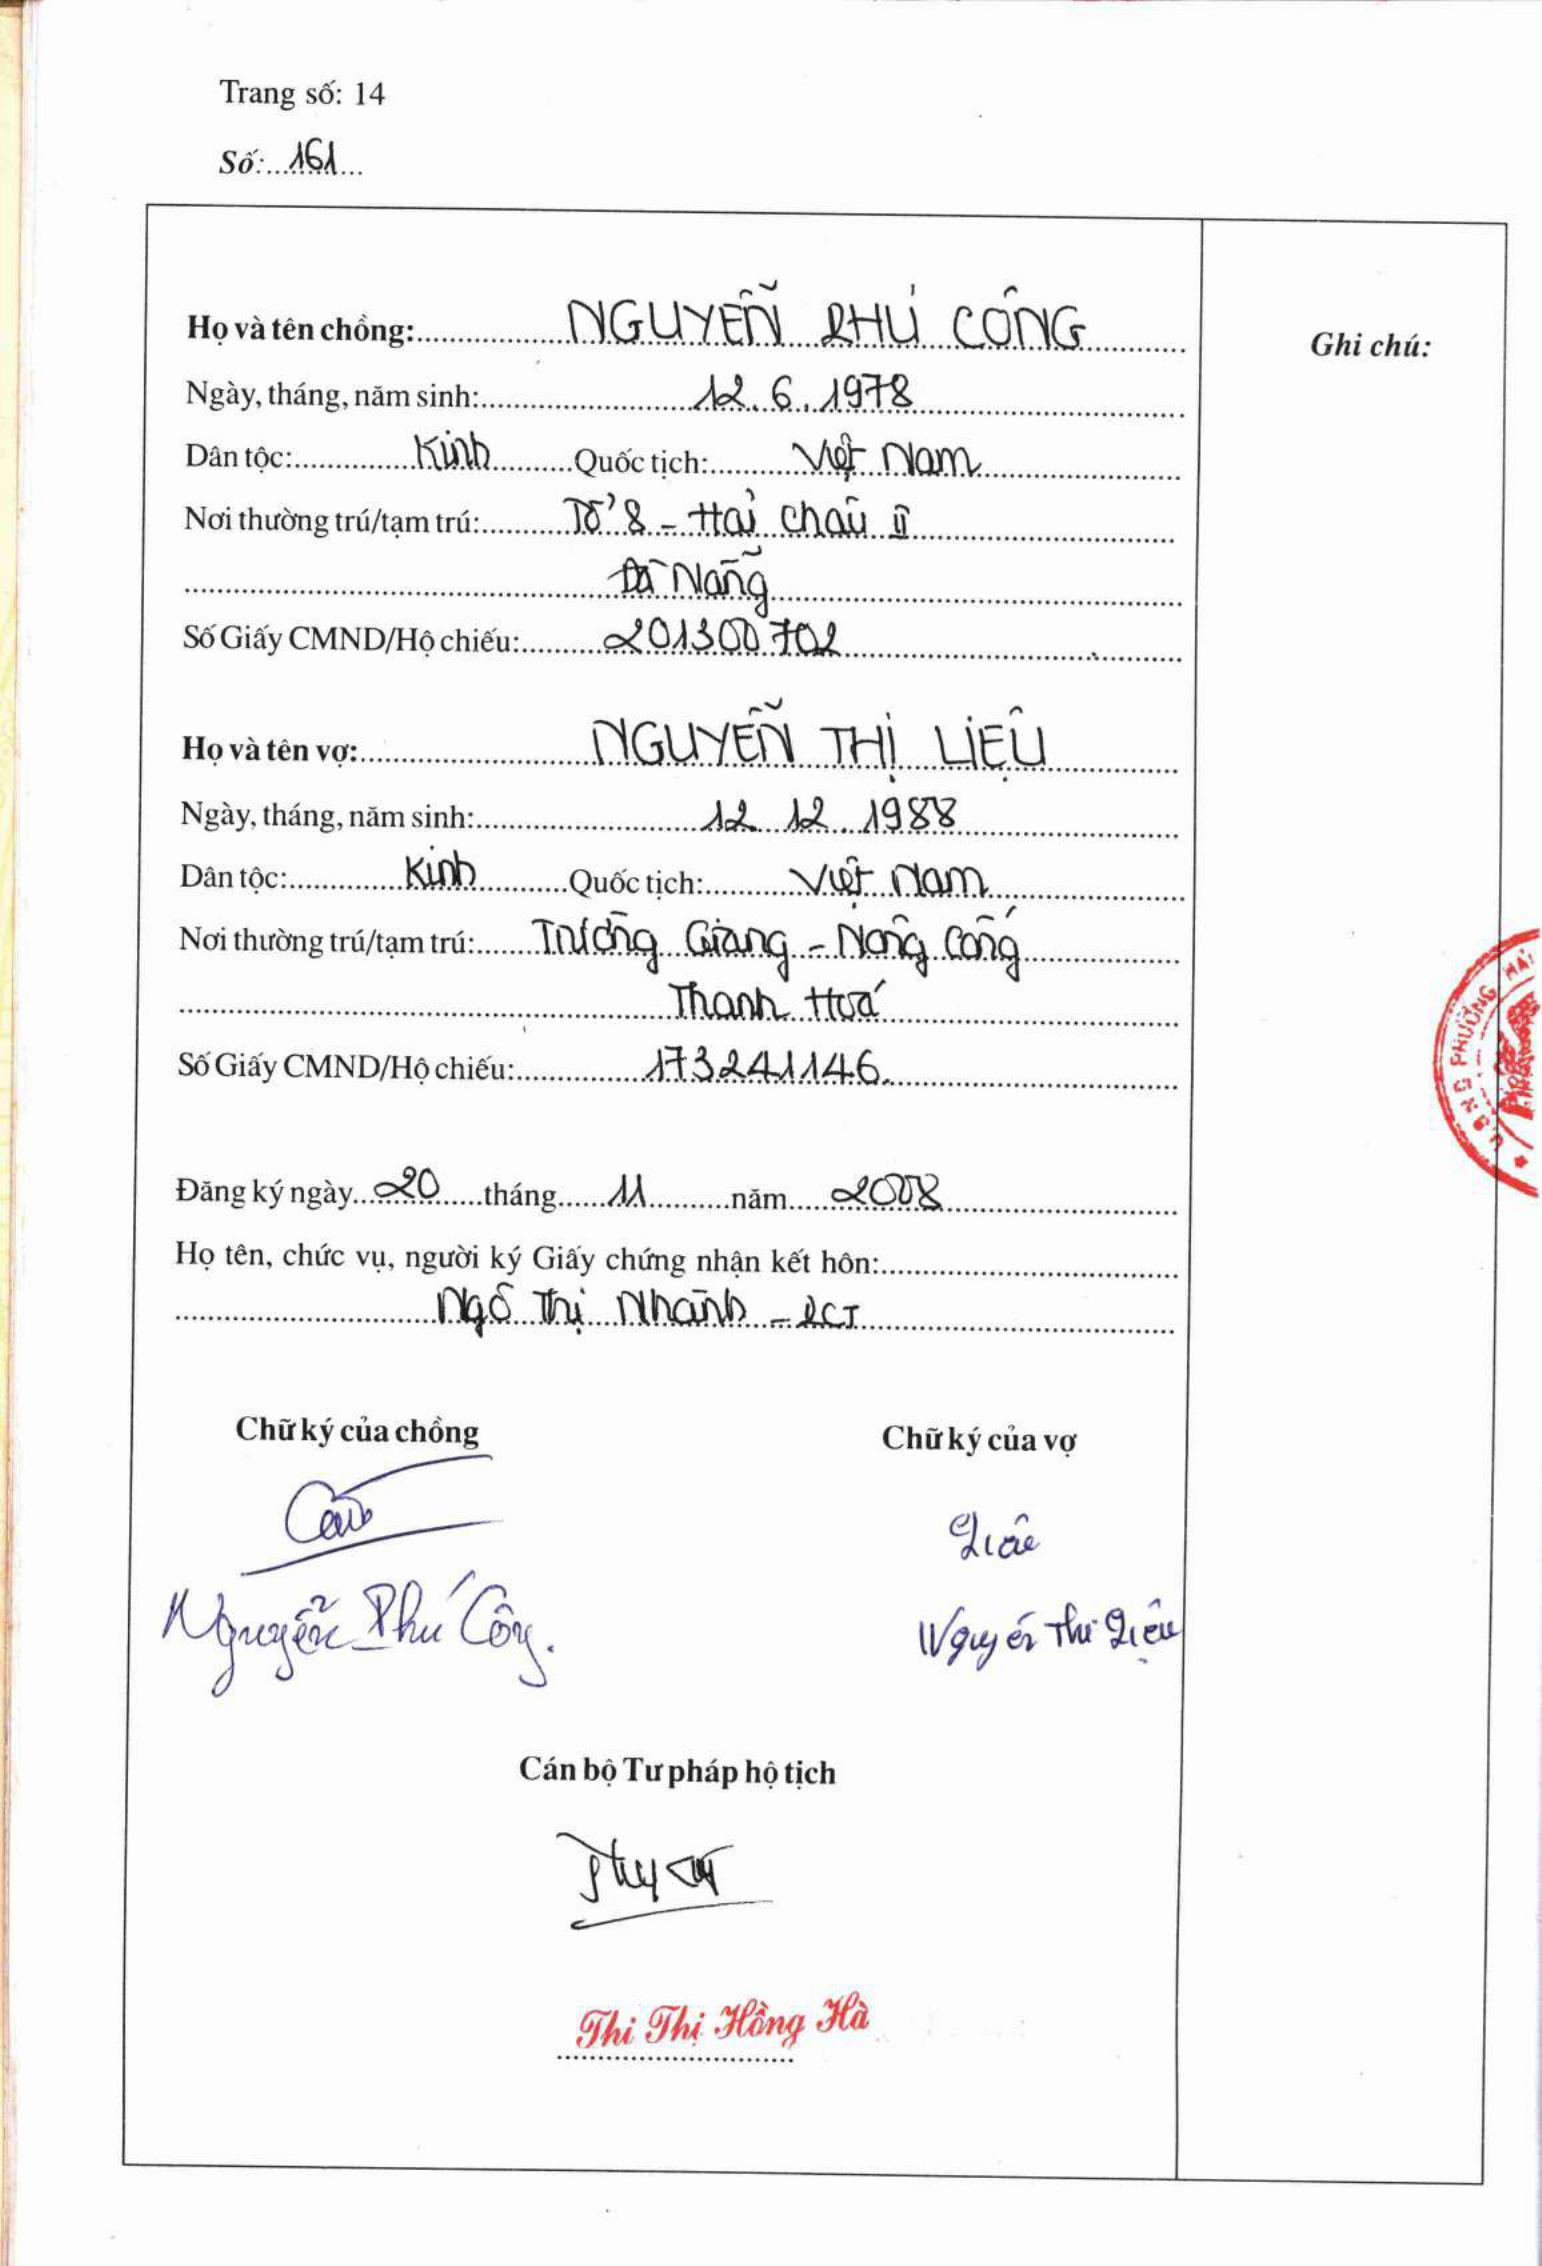 Trang số: 14
Số: 161
Họ và tên chồng: NGUYỄN PHÚ CÔNG
Ghi chú:
Ngày, tháng, năm sinh: 12.6.1978
Dân tộc: Kinh Quốc tịch: Việt Nam
Nơi thường trú/tạm trú: Tổ 8 - Hải Châu II
Đà Nẵng
Số Giấy CMND/Hộ chiếu: 201300702
Họ và tên vợ: NGUYỄN THỊ LIỆU
Ngày, tháng, năm sinh: 12.12.1988
Dân tộc: Kinh Quốc tịch: Việt Nam
Nơi thường trú/tạm trú: Trường Giang - Nông Cống
Thanh Hoá
Số Giấy CMND/Hộ chiếu: 173241146.
Đăng ký ngày 20 tháng 11 năm 2008
Họ tên, chức vụ, người ký Giấy chứng nhận kết hôn:
Ngô Thị Nhành - PCT
Chữ ký của chồng Chữ ký của vợ
Liệu
Nguyễn Phú Công. Nguyễn Thị Liệu
Cán bộ Tư pháp hộ tịch
Thi Thị Hồng Hà
U.B.N.D PHƯỜNG HẢI